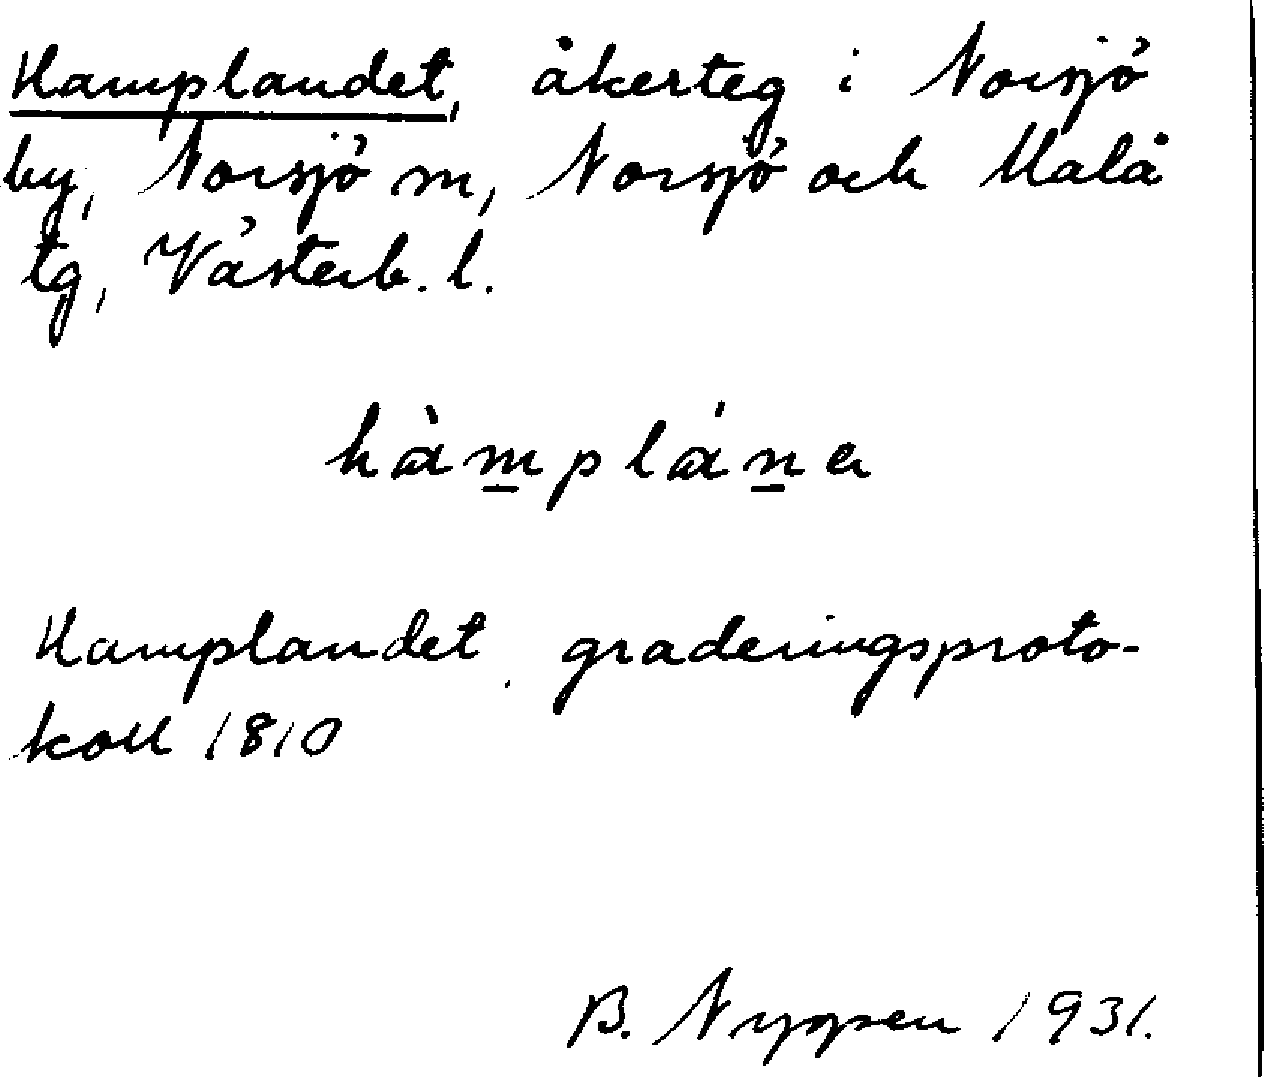 Hamplandet, åkerteg i Norsjö
by, Norsjö sn, Norsjö och Malå
tg, Västerb. l.
hàm̱pláṉa
Hamplandet graderingsproto-
koll 1810
B. Nyppen 1931.